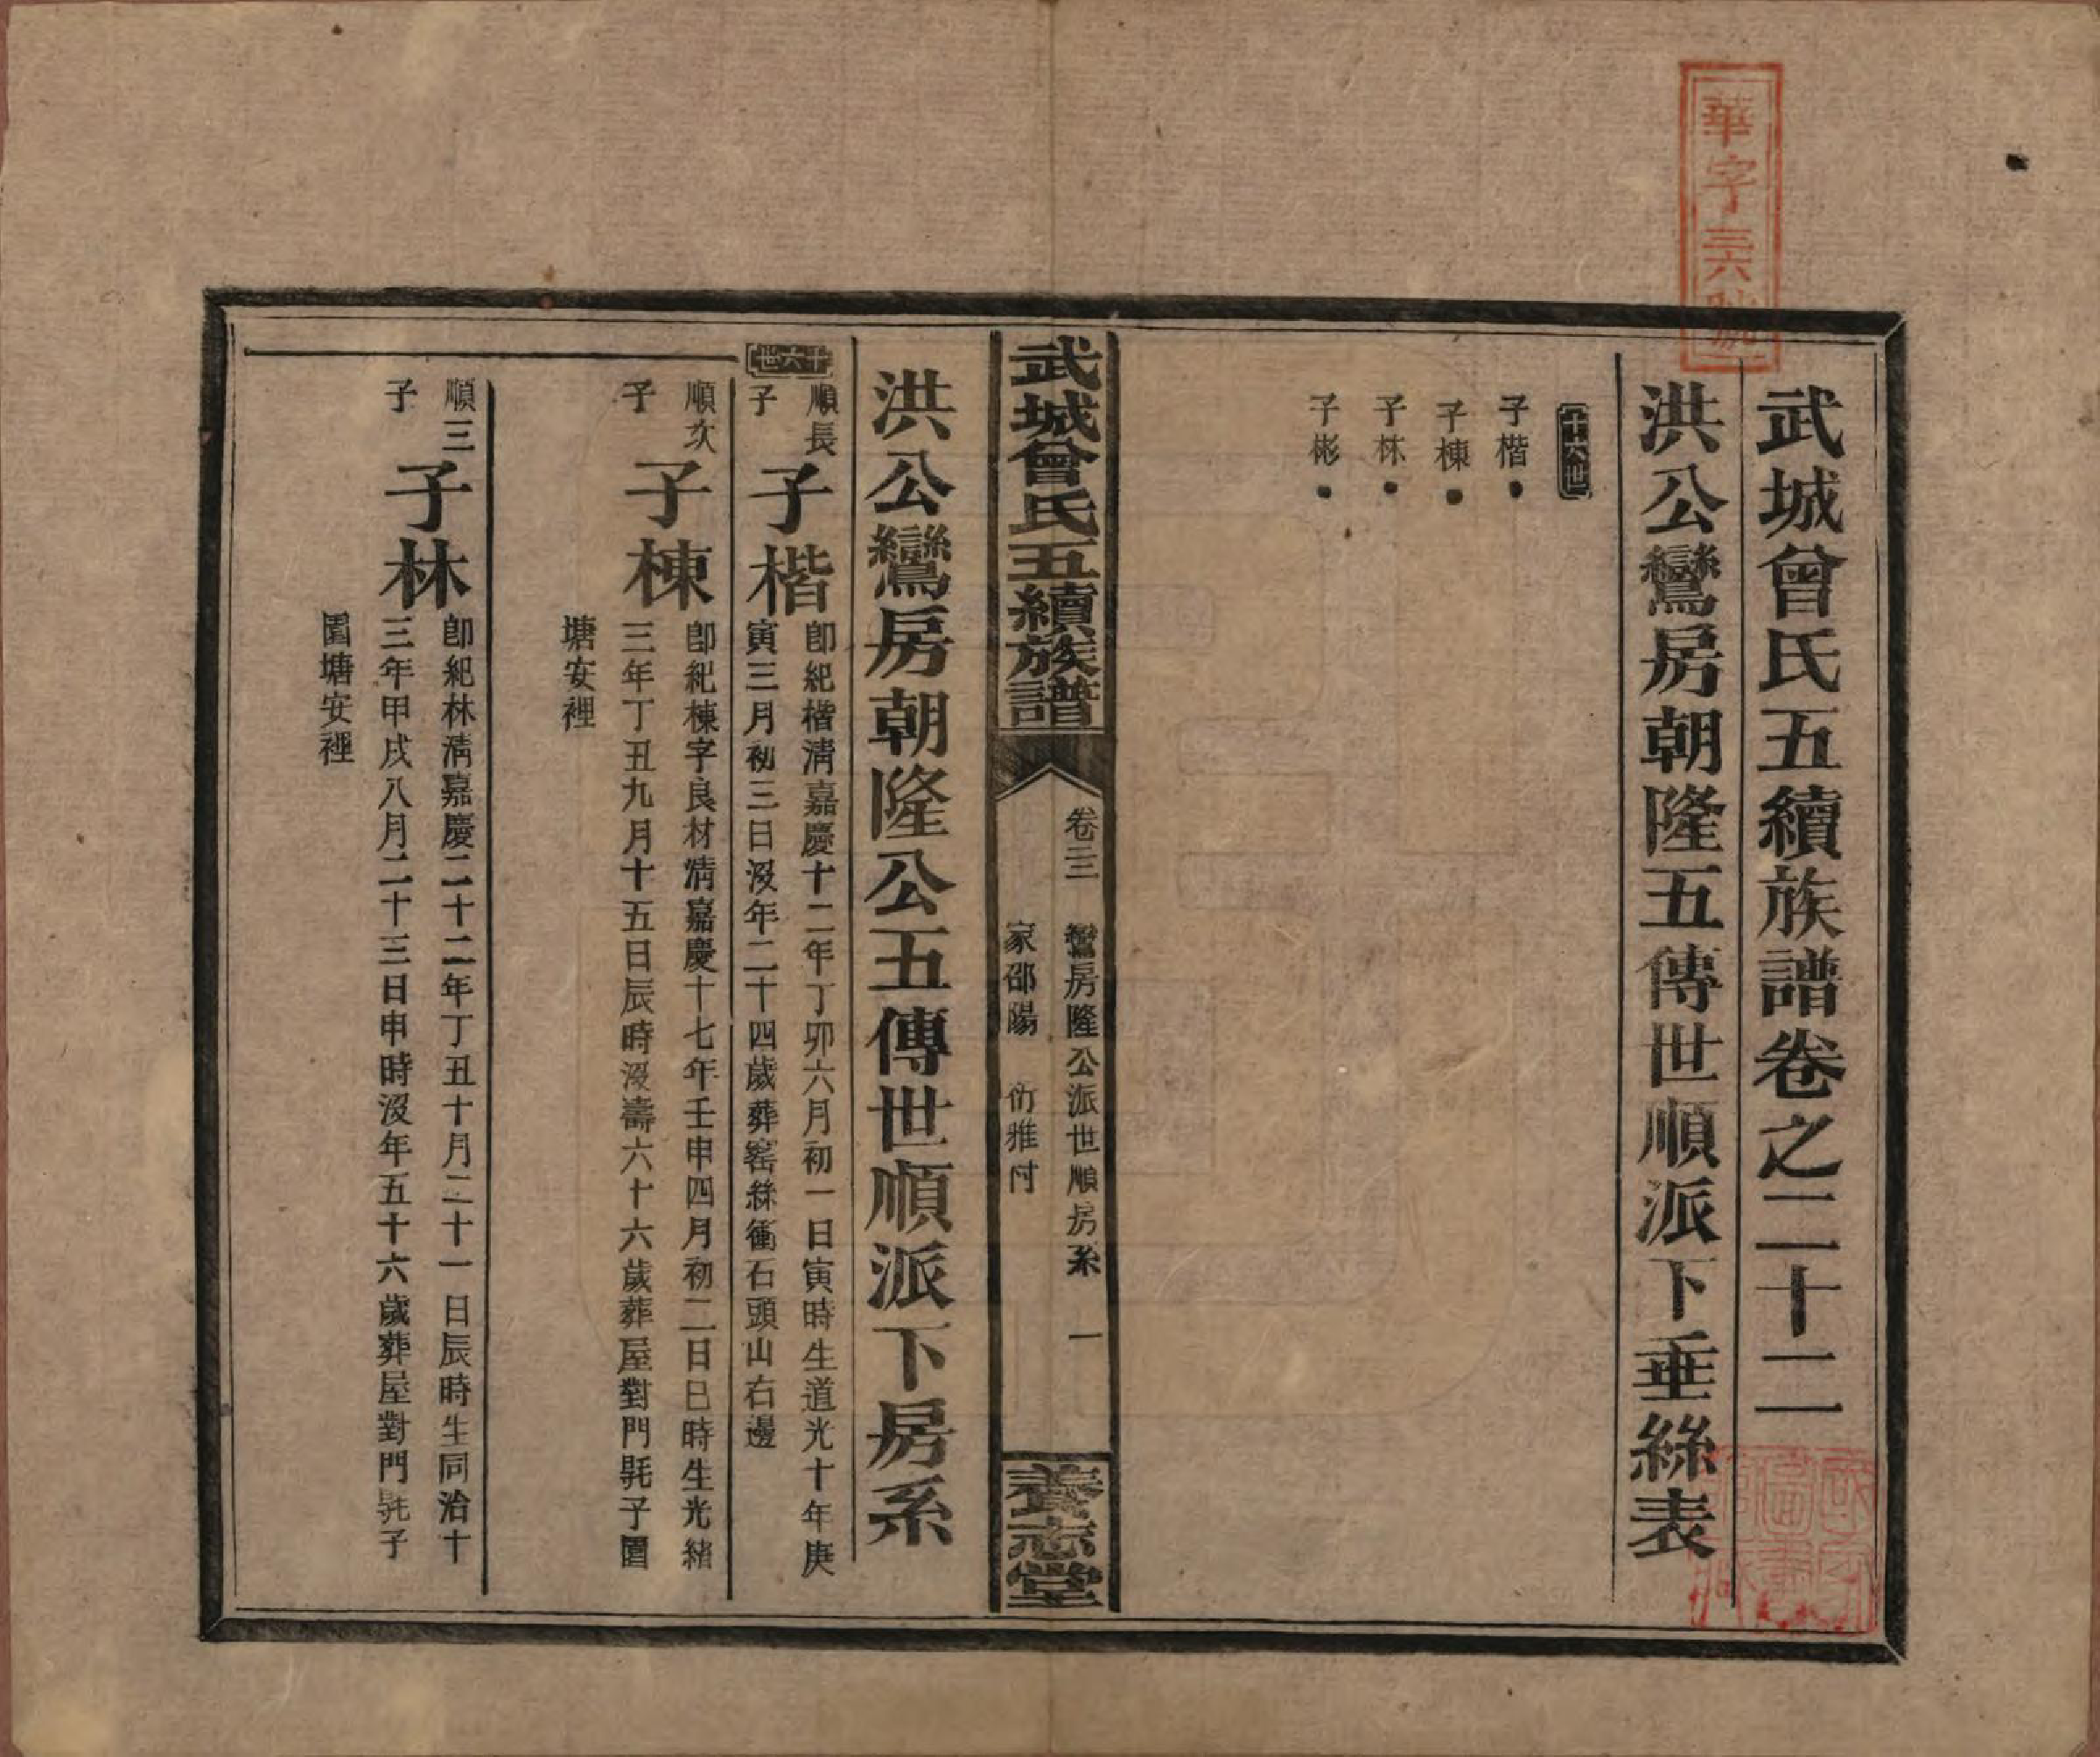 華字三六號
武城曾氏五續族譜卷之二十二
洪公鸞房朝隆五傳世順派下垂絲表
十六世
子楷
子棟
子林
子彬
武城曾氏五續族譜
卷二三　鸞房隆公派世順房系　一
家邵陽　衍雅付
養志堂
洪公鸞房朝隆公五傳世順派下房系
十六世
順長
子
子楷
卽紀楷淸嘉慶十二年丁卯六月初一日寅時生道光十年庚
寅三月初三日沒年二十四歲葬窰絲衝石頭山右邊
順次
子
子棟
卽紀棟字良材淸嘉慶十七年壬申四月初二日巳時生光緒
三年丁丑九月十五日辰時沒壽六十六歲葬屋對門毦子園
塘安裡
順三
子
子林
卽紀林淸嘉慶二十二年丁丑十月二十一日辰時生同治十
三年甲戌八月二十三日申時沒年五十六歲葬屋對門毦子
園塘安裡